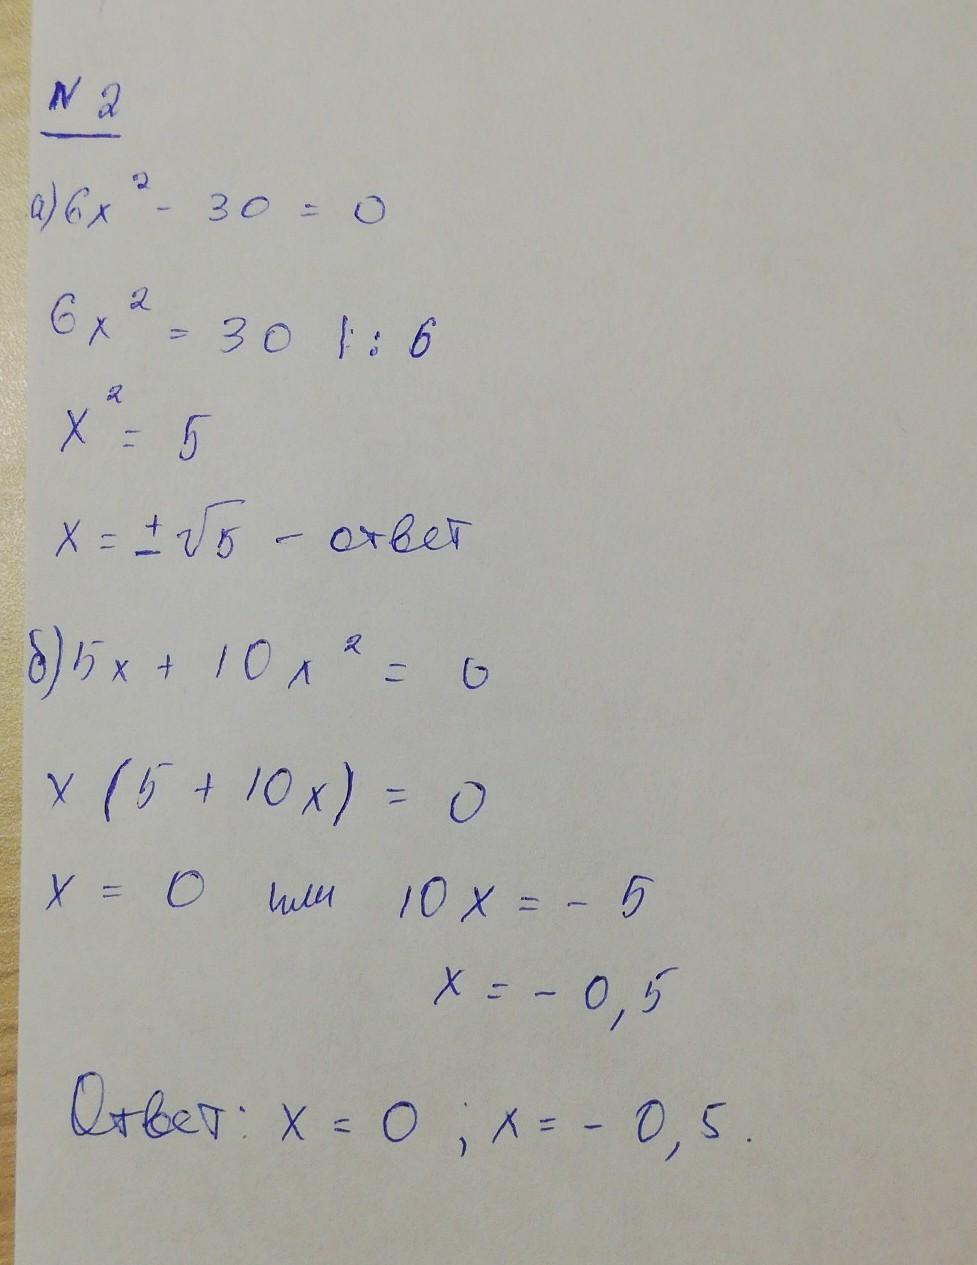 № 2
а) 6x² - 30 = 0
6x² = 30 |: 6
x² = 5
x = ±√5 - ответ
б) 5x + 10x² = 0
x (5 + 10x) = 0
x = 0 или 10x = - 5
x = - 0,5
Ответ: x = 0 ; x = - 0,5.